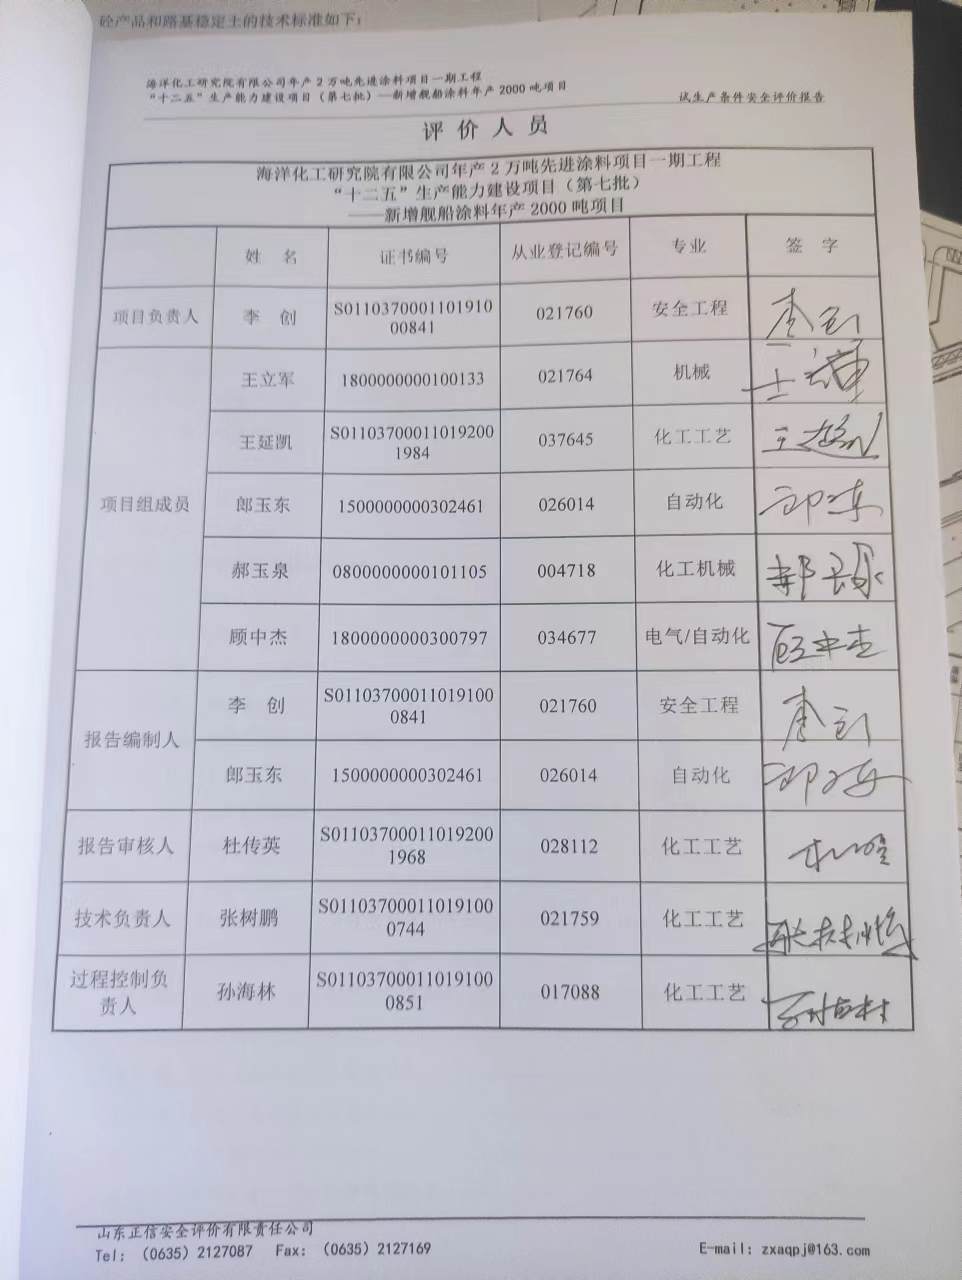 砼产品和路基稳定土的技术标准如下：
海洋化工研究院有限公司年产2万吨先进涂料项目一期工程
“十二五”生产能力建设项目（第七批）—新增舰船涂料年产2000吨项目
试生产条件安全评价报告
评价人员
海洋化工研究院有限公司年产2万吨先进涂料项目一期工程
“十二五”生产能力建设项目（第七批）
——新增舰船涂料年产2000吨项目
姓 名 证书编号 从业登记编号 专业 签 字
项目负责人 李 创 S011037000110191000841 021760 安全工程 李创
项目组成员
王立军 1800000000100133 021764 机械 王立军
王延凯 S011037000110192001984 037645 化工工艺 王延凯
郎玉东 1500000000302461 026014 自动化
郝玉泉 0800000000101105 004718 化工机械 郝玉泉
顾中杰 1800000000300797 034677 电气/自动化 顾中杰
报告编制人
李 创 S011037000110191000841 021760 安全工程 李创
郎玉东 1500000000302461 026014 自动化
报告审核人 杜传英 S011037000110192001968 028112 化工工艺
技术负责人 张树鹏 S011037000110191000744 021759 化工工艺 张树鹏
过程控制负责人 孙海林 S011037000110191000851 017088 化工工艺 孙海林
山东正信安全评价有限责任公司
Tel：（0635）2127087 Fax：（0635）2127169
E-mail：zxaqpj@163.com